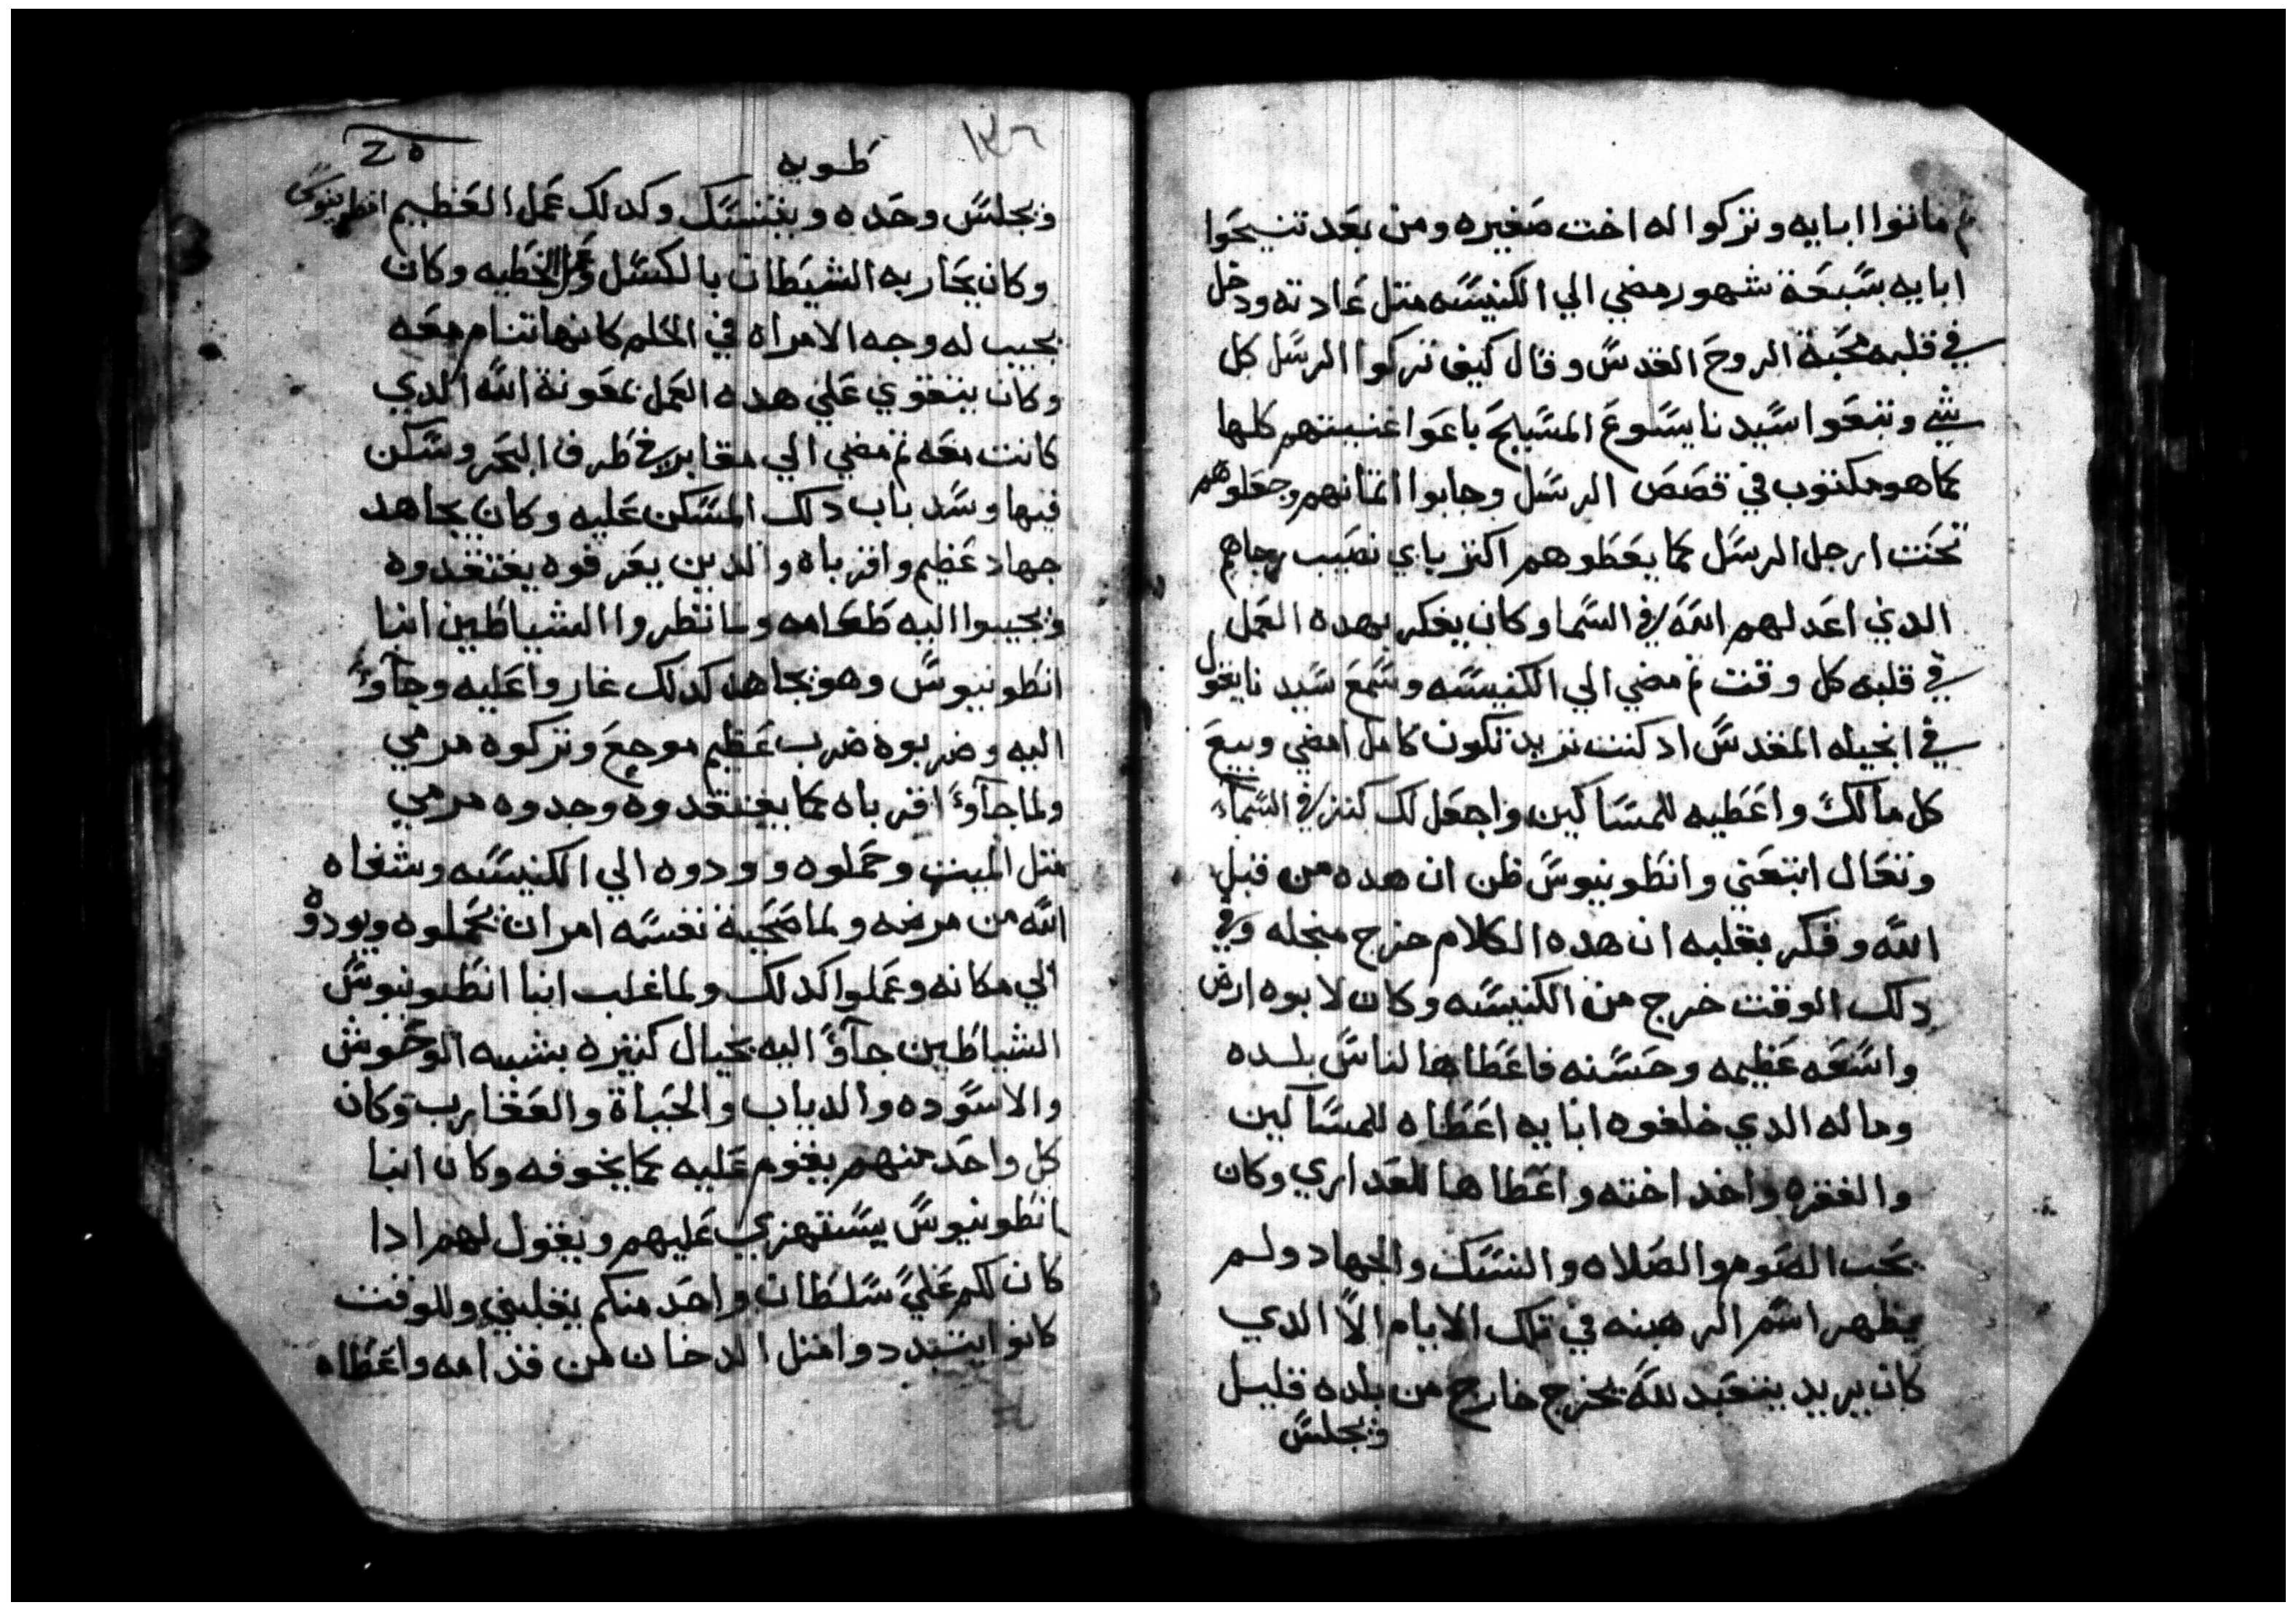 ثم ماتوا ابايه وتركوا له اخت صغيره ومن بعد تنيحوا
ابايه بسبعة شهور مضي الي الكنيسه متل عادته ودخل
في قلبه محبة الروح القدس وقال كيف تركوا الرسل كل
شي وتبعوا سيدنا يسوع المسيح باعوا غنيتهم كلها
كما هو مكتوب في قصص الرسل وجابوا اتمانهم وجعلوهم
تحت ارجل الرسل كما يعطوهم اكتر باي نصيب رجاهم
الدي اعد لهم الله في السما وكان يفكر بهده العمل
في قلبه كل وقت تم مضي الي الكنيسه وسمع سيدنا يقول
في انجيله المقدس اد كنت تريد تكون كامل امضي وبيع
كل مالك واعطيه للمساكين واجعل لك كنز في السماء
وتعال اتبعني وانطونيوس ظن ان هده من قبل
الله وفكر بقلبه ان هده الكلام خرج منجله وفي
دلك الوقت خرج من الكنيسه وكان لابوه ارض
واسعه عظيمه وحسنه فاعطاها لناس بلده
وماله الدي خلفوه ابايه اعطاه للمساكين
والفقره واخد اخته واعطاها للعداري وكان
يحب الصوم والصلاه والنسك والجهاد ولم
يظهر اسم الرهبنه في تلك الايام الا الدي
كان يريد يتعبد لله يخرج خارج من بلده قليل
ويجلس
١٣٦
طوبه
ويجلس وحده ويتنسك وكدلك عمل العظيم انطونيوس
وكان يحاربه الشيطان بالكسل وعمل الخطيه وكان
يجيب له وجه الامراه في الحلم كانها تنام معه
وكان يتقوي علي هده العمل بمعونة الله الدي
كانت معه تم مضي الي مقابر في طرف البحر وسكن
فيها وسد باب دلك المسكن عليه وكان يجاهد
جهاد عظيم واقرباه والدين يعرفوه يفتقدوه
ويجيبوا اليه طعامه ولما نظروا الشياطين انبا
انطونيوس وهو يجاهد كدلك غاروا عليه وجآوٓا
اليه وضربوه ضرب عظيم موجع وتركوه مرمي
ولما جآوٓا اقرباه كما يفتقدوه وجدوه مرمي
متل الميت وحملوه وودوه الي الكنيسه وشفاه
الله من مرضه ولما صحية نفسه امر ان يحملوه ويودوه
الي مكانه وعملوا كدلك ولما غلب انبا انطونيوس
الشياطين جآوٓا اليه بخيال كتيره بشبه الوحوش
والاسوده والدياب والحياة والعقارب وكان
كل واحد منهم يقوم عليه كما يخوفه وكان انبا
انطونيوس يستهزي عليهم ويقول لهم ادا
كان لكم علي سلطان واحد منكم يغلبني وللوقت
كانوا يتبددوا متل الدخان من قدامه واعطاه